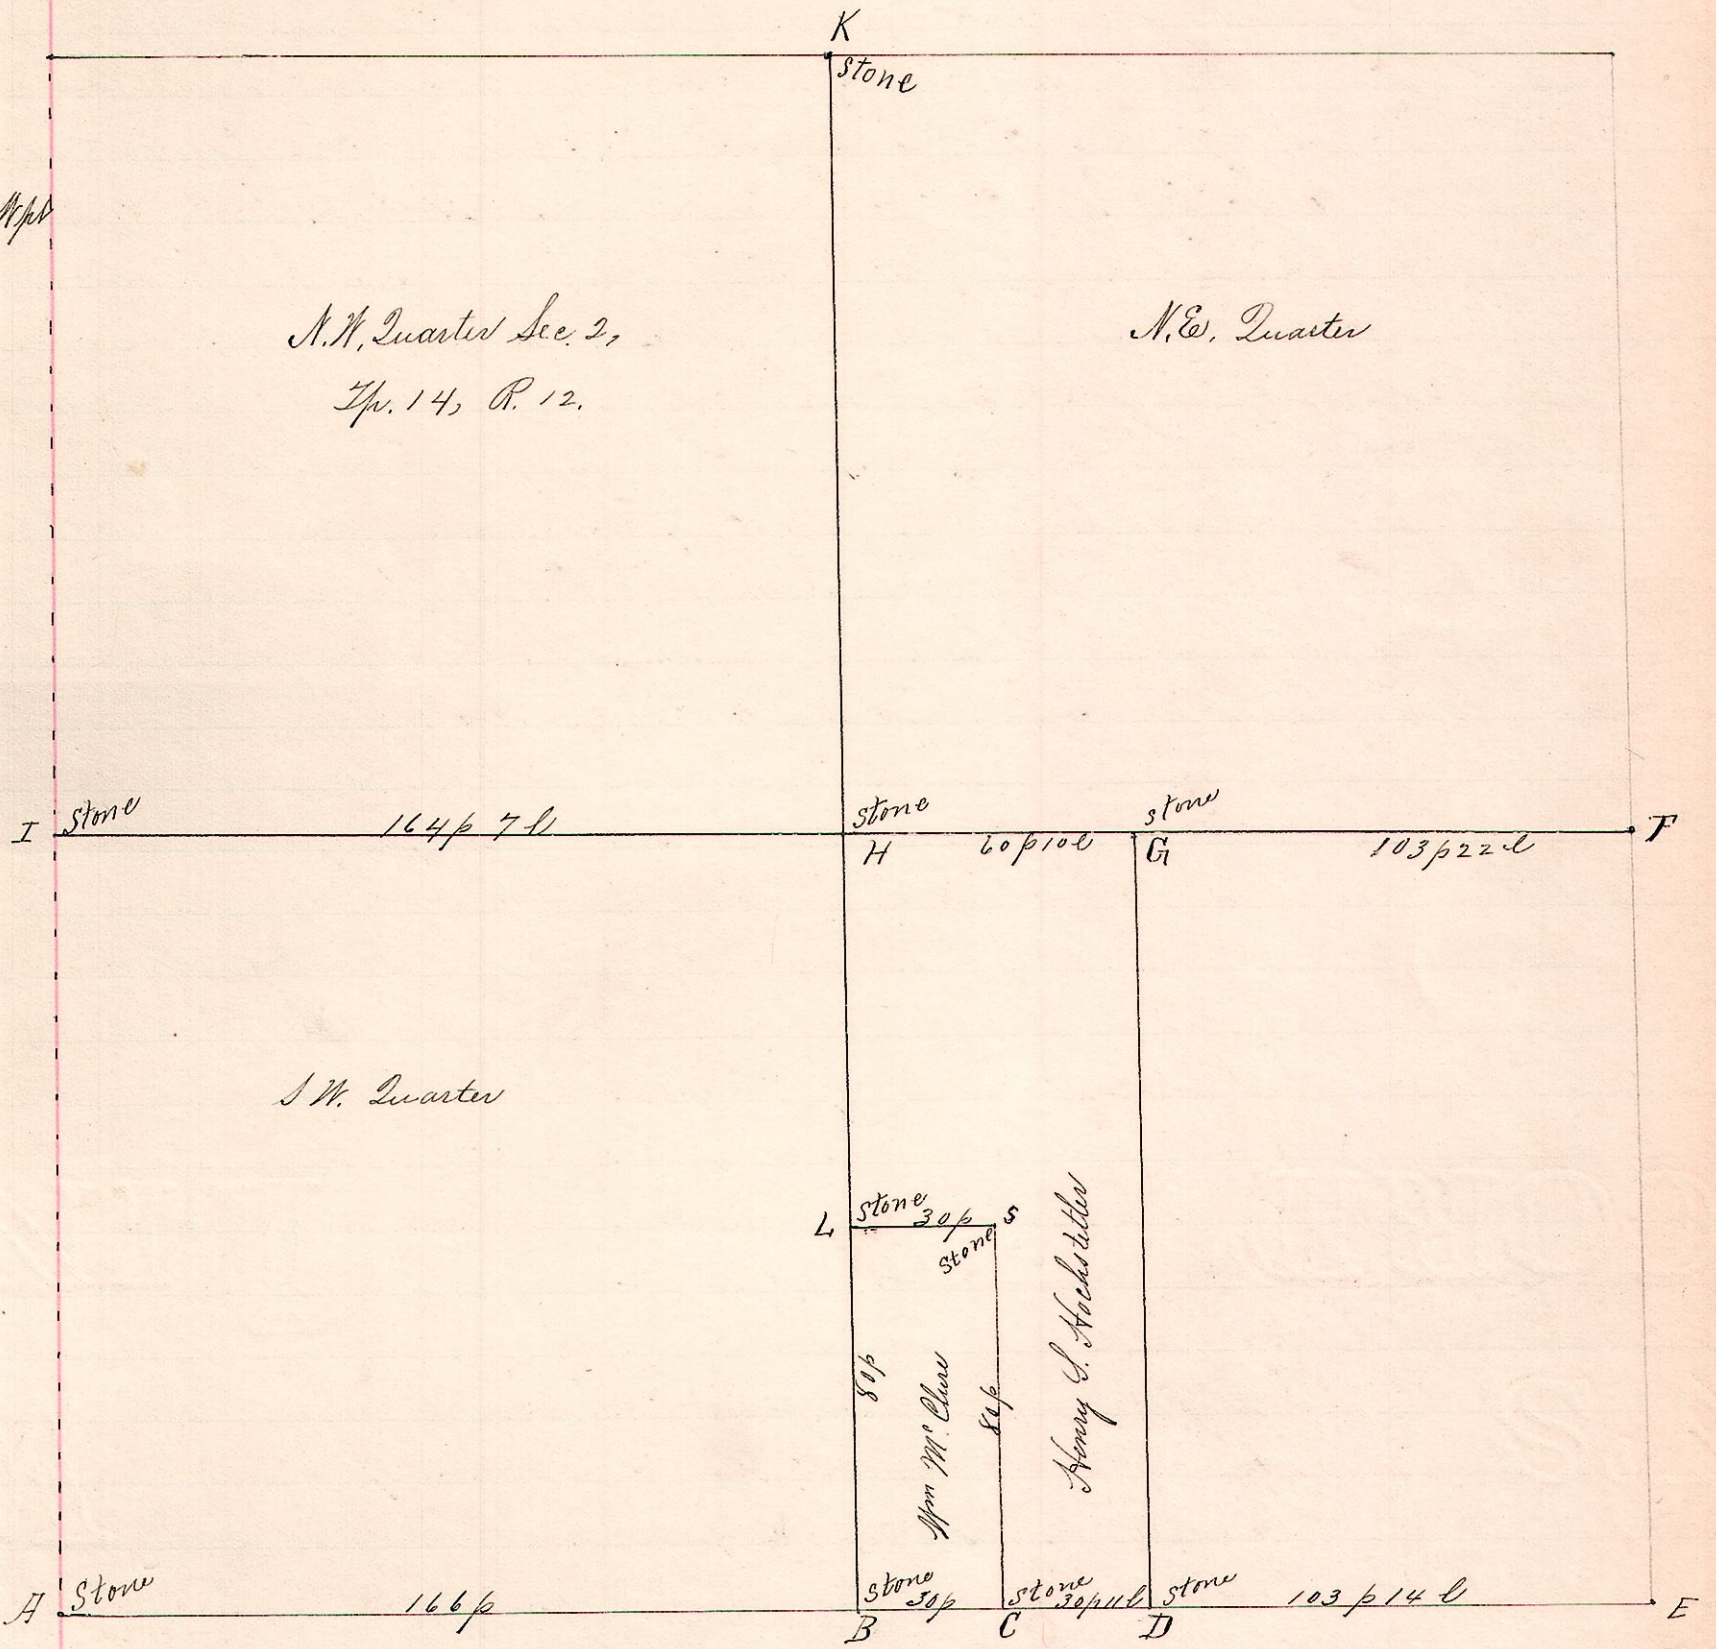 K
Stone
N.W. Quarter Sec. 2,
Tp. 14, R. 12.
N.E. Quarter
I
Stone
164 p 7 l
Stone
H
60 p 10 l
stone
G
103 p 22 l
F
S W. Quarter
L
Stone
30 p
S
Stone
80 p
Wm Mc Clure
80 p
Henry S. Hochstetler
A
Stone
166 p
Stone
30p
B
Stone
30p11l
C
Stone
D
103 p 14 l
E